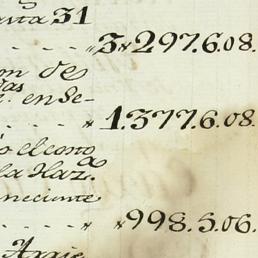 asta 31
- - - - „ 3„297.6.08.
on de
das
. en Se-
. . . . „ 1.377.6.08.
o el costo
la Haza
neciente
. . . . „ „998.5.06.